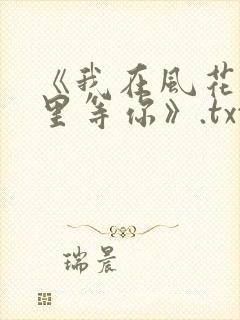 《我在風花
里等你》.tx
瑞晨